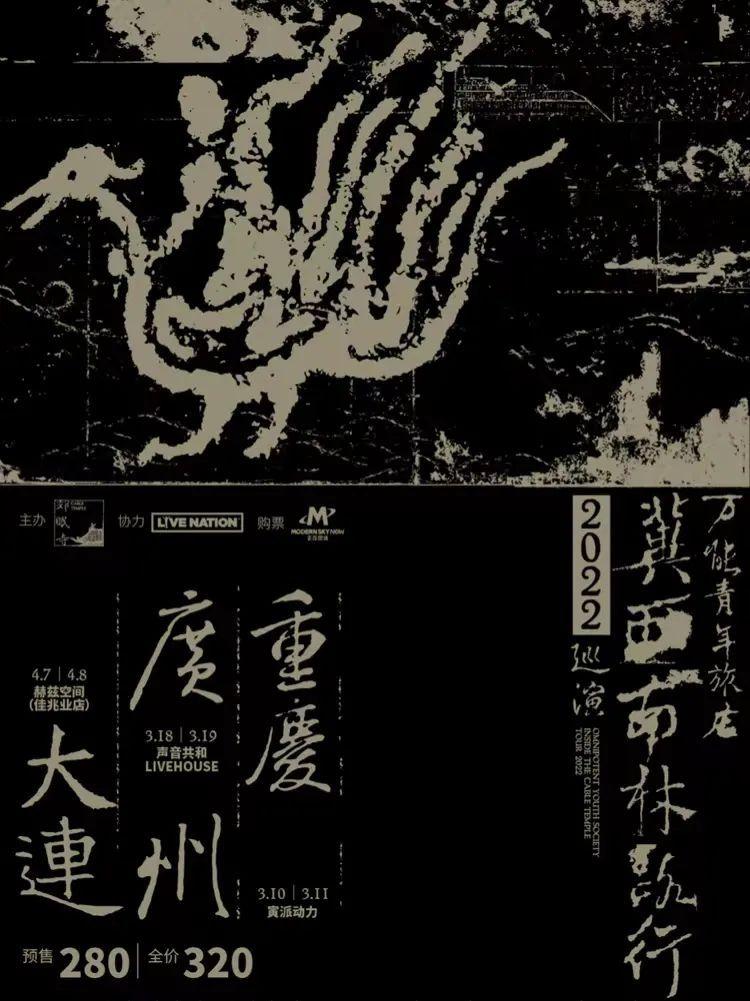 主办 CABLE TEMPLE 协力 LIVE NATION 购票 MODERN SKY NOW
万能青年旅店
冀西南林路行
2022
巡演
OMNIPOTENT YOUTH SOCIETY
INSIDE THE CABLE TEMPLE
TOUR 2022
重慶
3.10 | 3.11
寅派动力
廣州
3.18 | 3.19
声音共和
LIVEHOUSE
大連
4.7 | 4.8
赫兹空间
(佳兆业店)
预售 280 | 全价 320